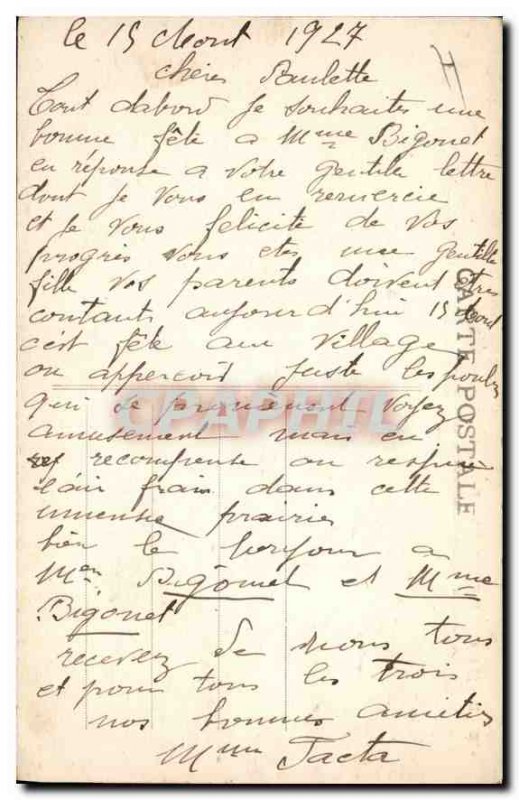 le 15 Aout 1927
chères Paulette
Tout dabord je souhaites une
bonne fête a Mme Bigonet
en réponse a votre gentille lettre
dont je vous en remercie
et je vous felicite de vos
progrès vous etes une gentille
fille vos parents doivent etres
contants aujourd'hui 15 Aout
c'est fête au village
on apperçoit juste les poules
qui se promènent voyez
amusement mais en
recompense on respire
l'air frais dans cette
immense prairie
bien le bonjour a
Mr Bigonet et Mme
Bigonet
recevez de nous tous
et pour tous les trois
nos bonnes amitiés
Mme Tacta
CARTE POSTALE
CPAPHIL